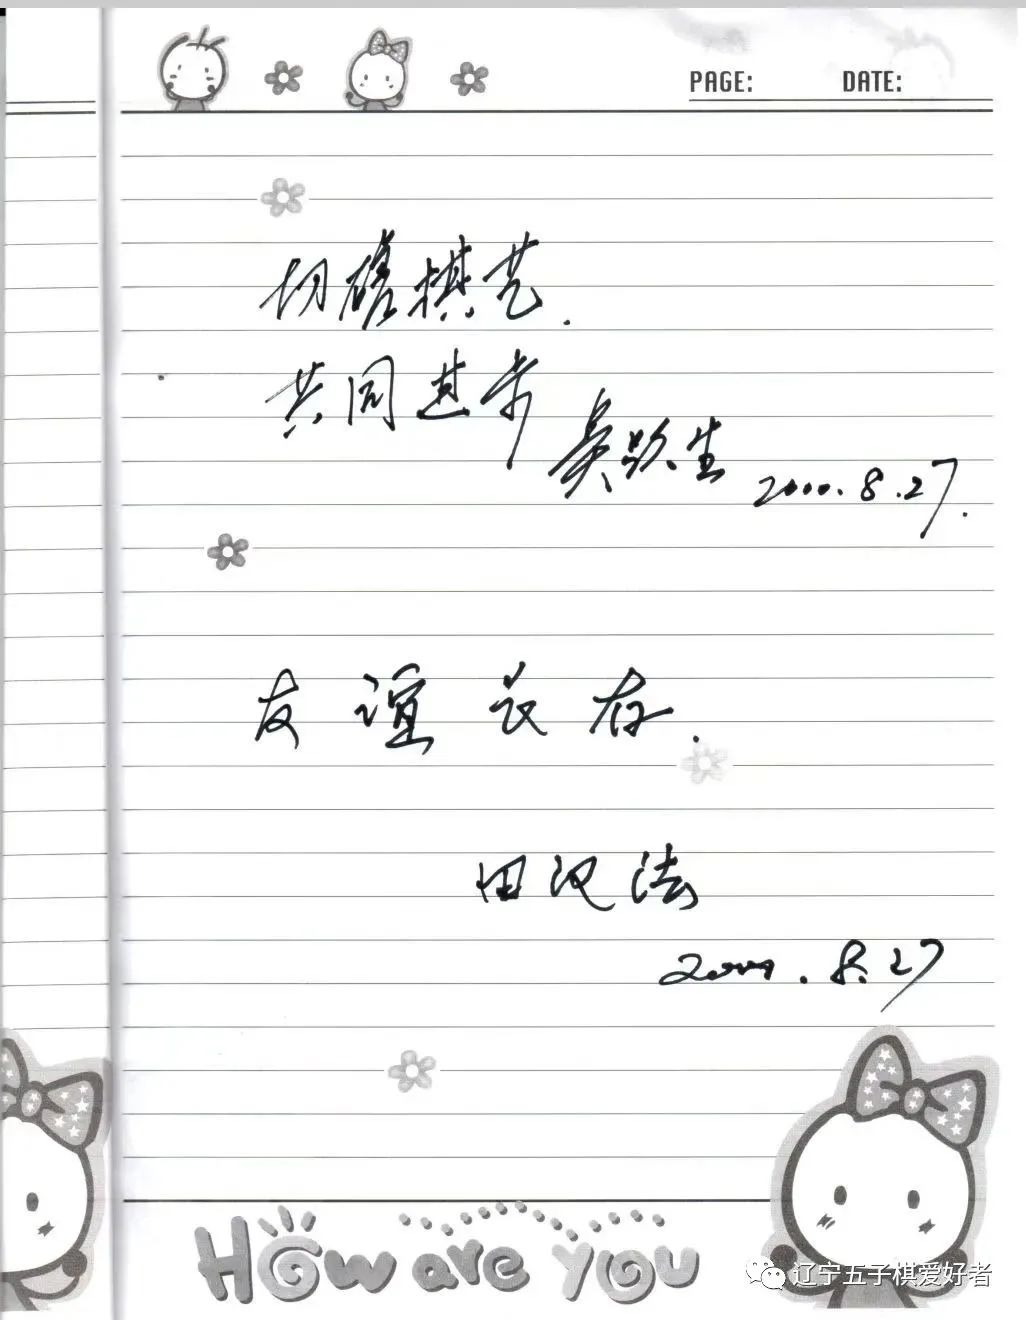 PAGE: DATE:
切磋棋艺.
共同进步
吴跃生 2000.8.27.
友谊长存.
田汉法
2000.8.27
How are you
辽宁五子棋爱好者